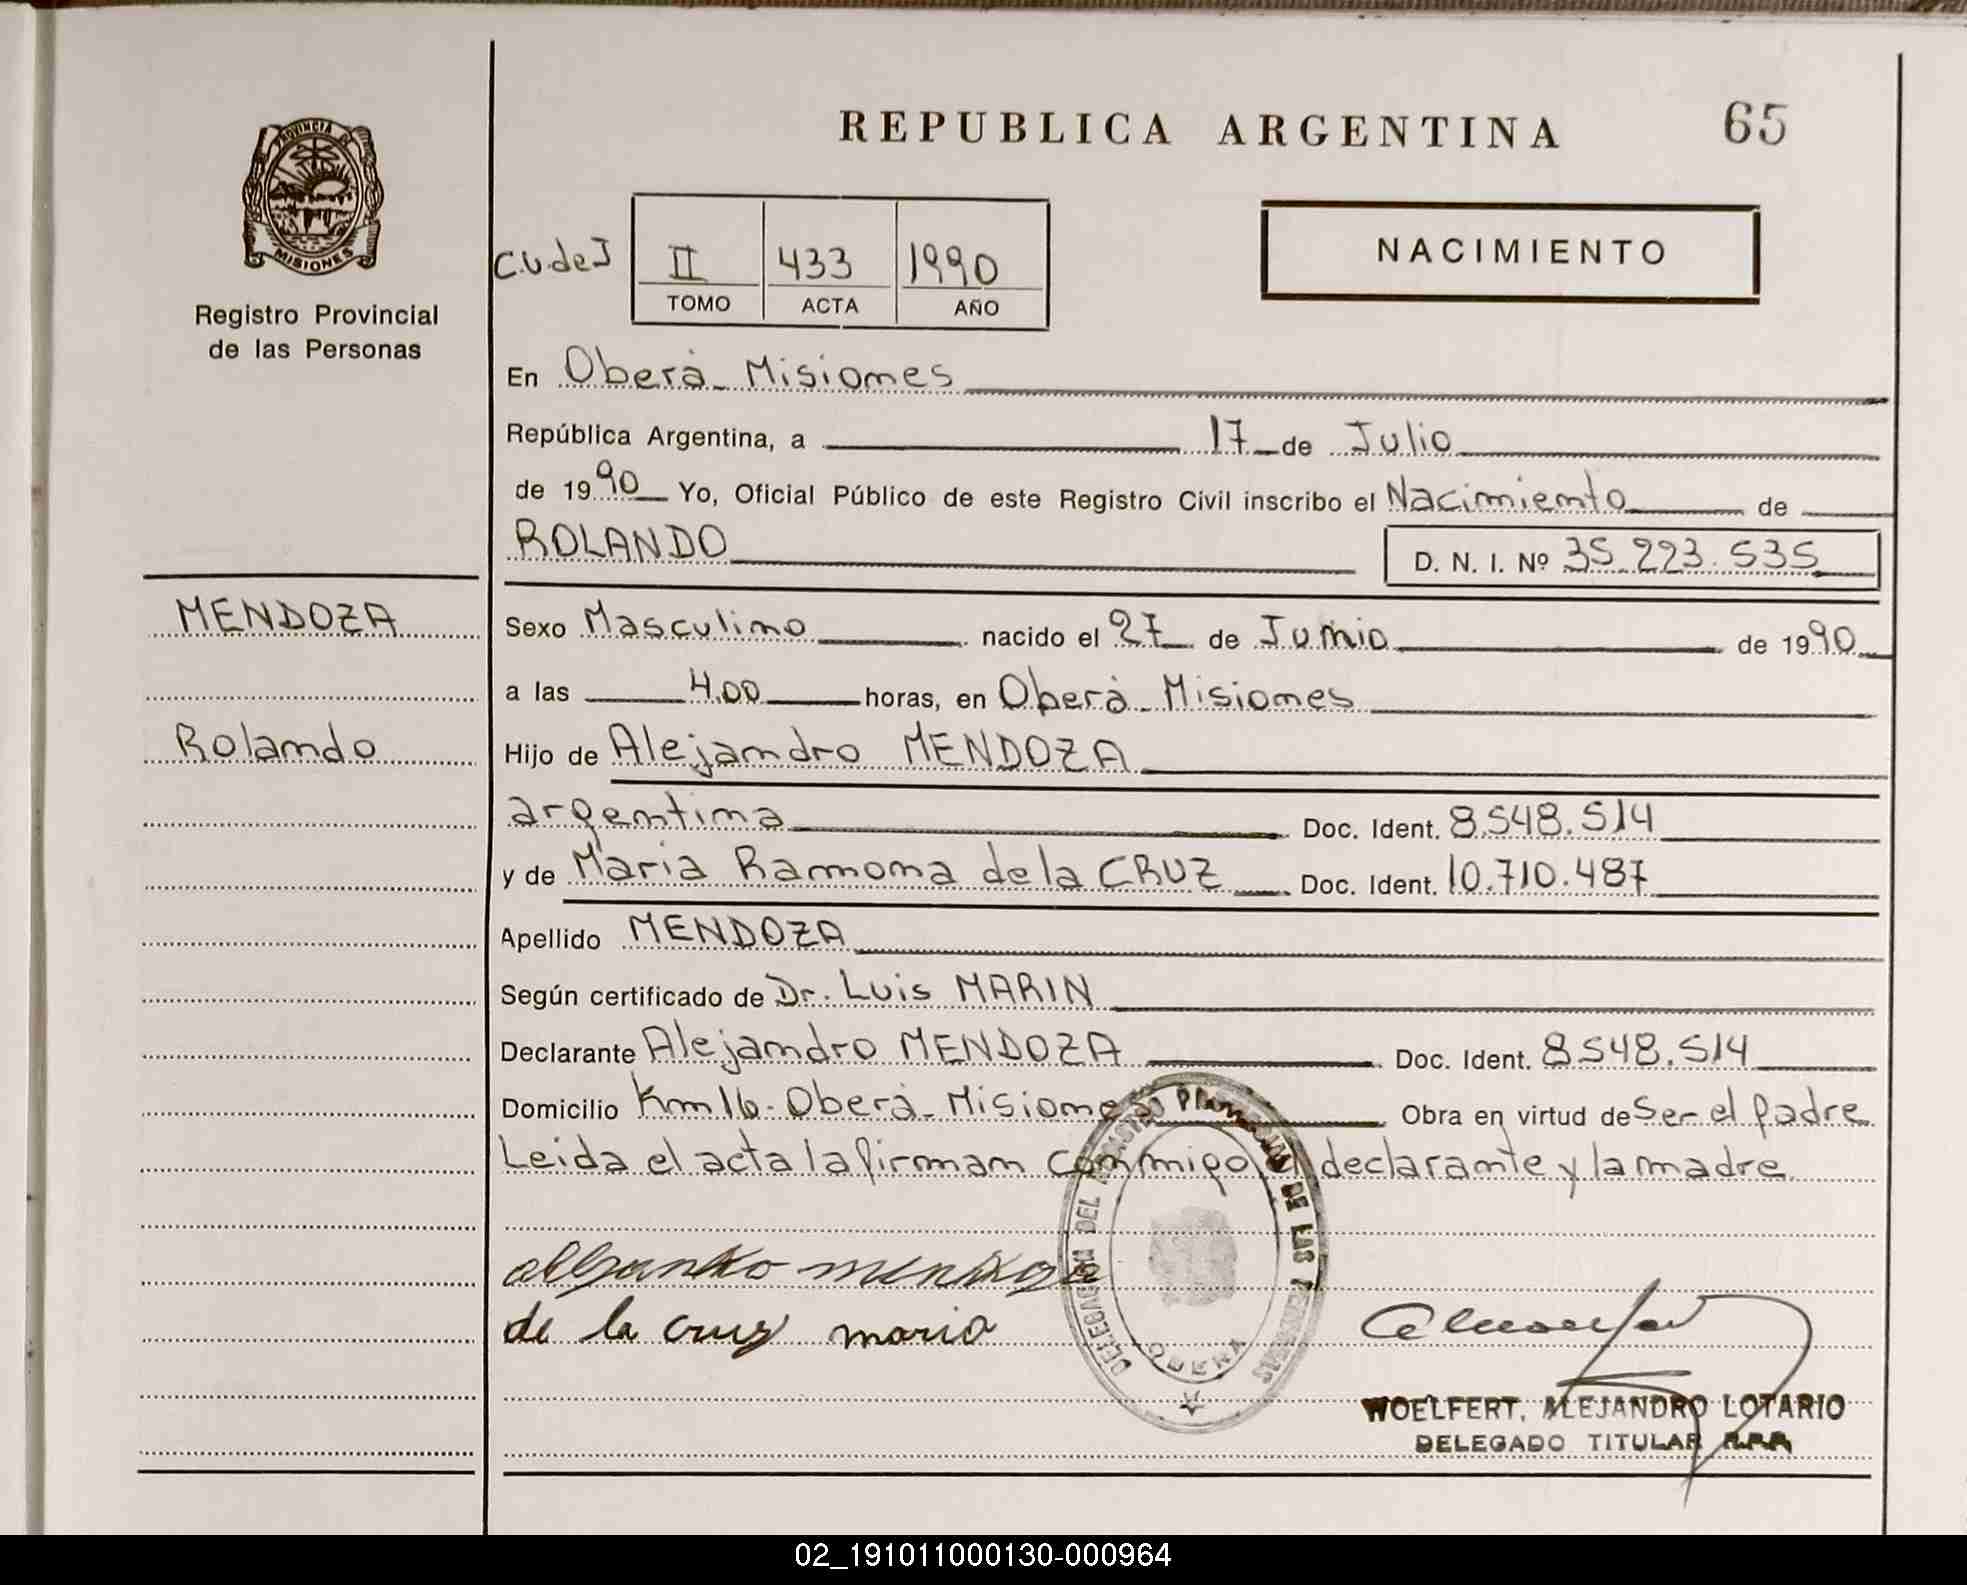 REPUBLICA ARGENTINA
65
PROVINCIA DE
MISIONES
Registro Provincial
de las Personas
C.U.de J
II
433
1990
TOMO
ACTA
AÑO
NACIMIENTO
En Oberà - Misiones
República Argentina, a 17 de Julio
de 1990 Yo, Oficial Público de este Registro Civil inscribo el Nacimiento de
ROLANDO
D. N. I. Nº 35.223.535
MENDOZA
Rolando
Sexo Masculino nacido el 27 de Junio de 1990
a las 4.00 horas, en Oberà - Misiones
Hijo de Alejandro MENDOZA
argentina Doc. Ident. 8.548.514
y de Maria Ramona de la CRUZ Doc. Ident. 10.710.487
Apellido MENDOZA
Según certificado de Dr. Luis MARIN
Declarante Alejandro MENDOZA Doc. Ident. 8548.514
Domicilio Km 16 - Oberà - Misiones Obra en virtud de Ser el padre
Leida el acta la firman conmigo el declarante y la madre
mendoza
de la cruz maria
DELEGACION DEL REGISTRO DE LAS PERSONAS
OBERA
WOELFERT, ALEJANDRO LOTARIO
DELEGADO TITULAR R.P.P.
02_191011000130-000964